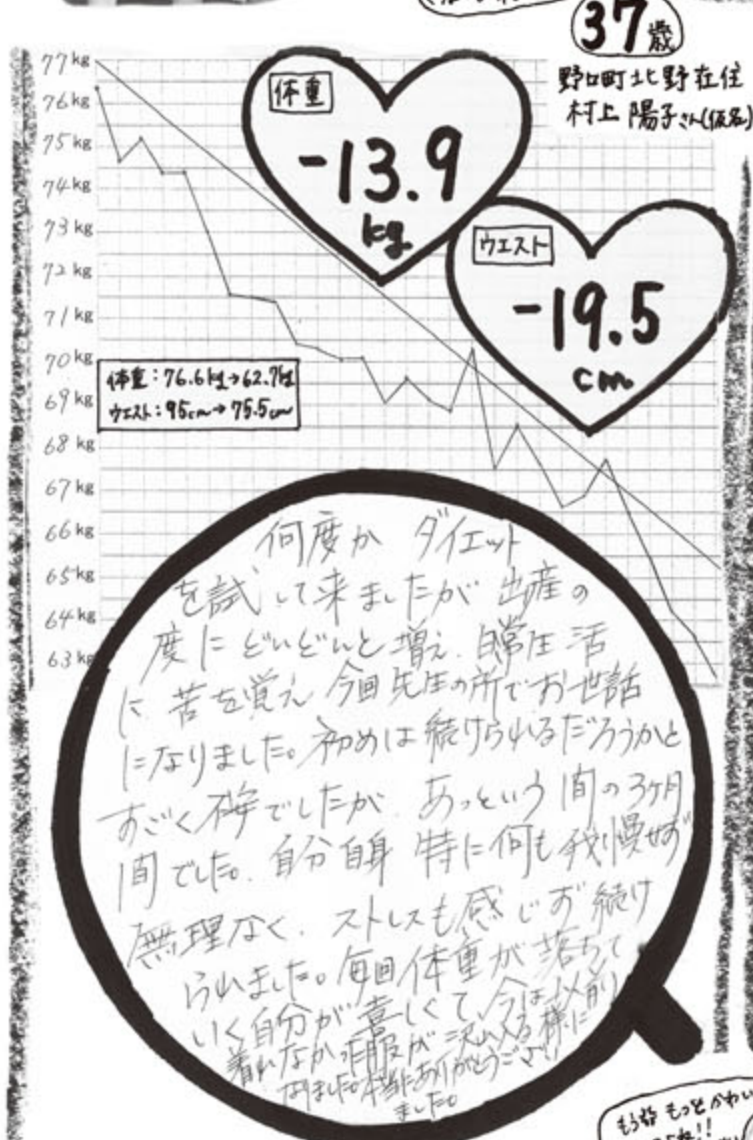 37歳
野口町北野在住
村上 陽子さん(仮名)
体重
-13.9
kg
ウエスト
-19.5
cm
77kg
76kg
75kg
74kg
73kg
72kg
71kg
70kg
69kg
68kg
67kg
66kg
65kg
64kg
63kg
体重：76.6kg→62.7kg
ウエスト：95cm→75.5cm
何度か ダイエット
を試して来ましたが 出産の
度にどんどんと増え、日常生活
に 苦を覚え 今回先生の所でお世話
になりました。初めは続けられるだろうかと
すごく不安でしたが、あっという間の3ヶ月
間でした。自分自身 特に何も我慢せず
無理なく、ストレスも感じず続け
られました。毎回体重が落ちて
いく自分が喜しくて 今は以前
着れなかった服が 沢山入る様に
なりました。本当にありがとうござい
ました。
もっとかわい